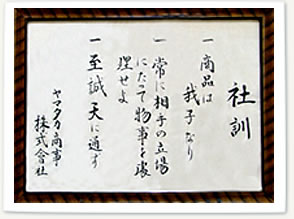 社訓
一 商品は
我子なり
一 常に相手の立場
にたって物事を處
理せよ
一 至誠天に通す
ヤマタカ商事
株式會社